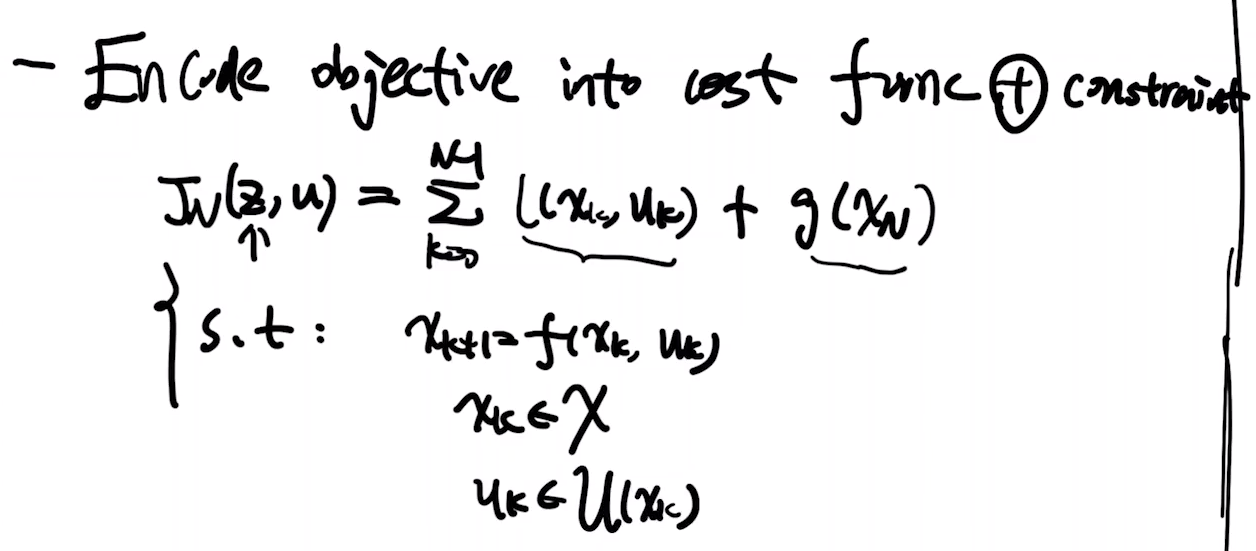 - Encode objective into cost func ⊕ constraint
J_N(z, u) = Σ_{k=0}^{N-1} l(x_k, u_k) + g(x_N)
↑
{ s.t : x_{k+1} = f(x_k, u_k)
x_k ∈ X
u_k ∈ U(x_k)